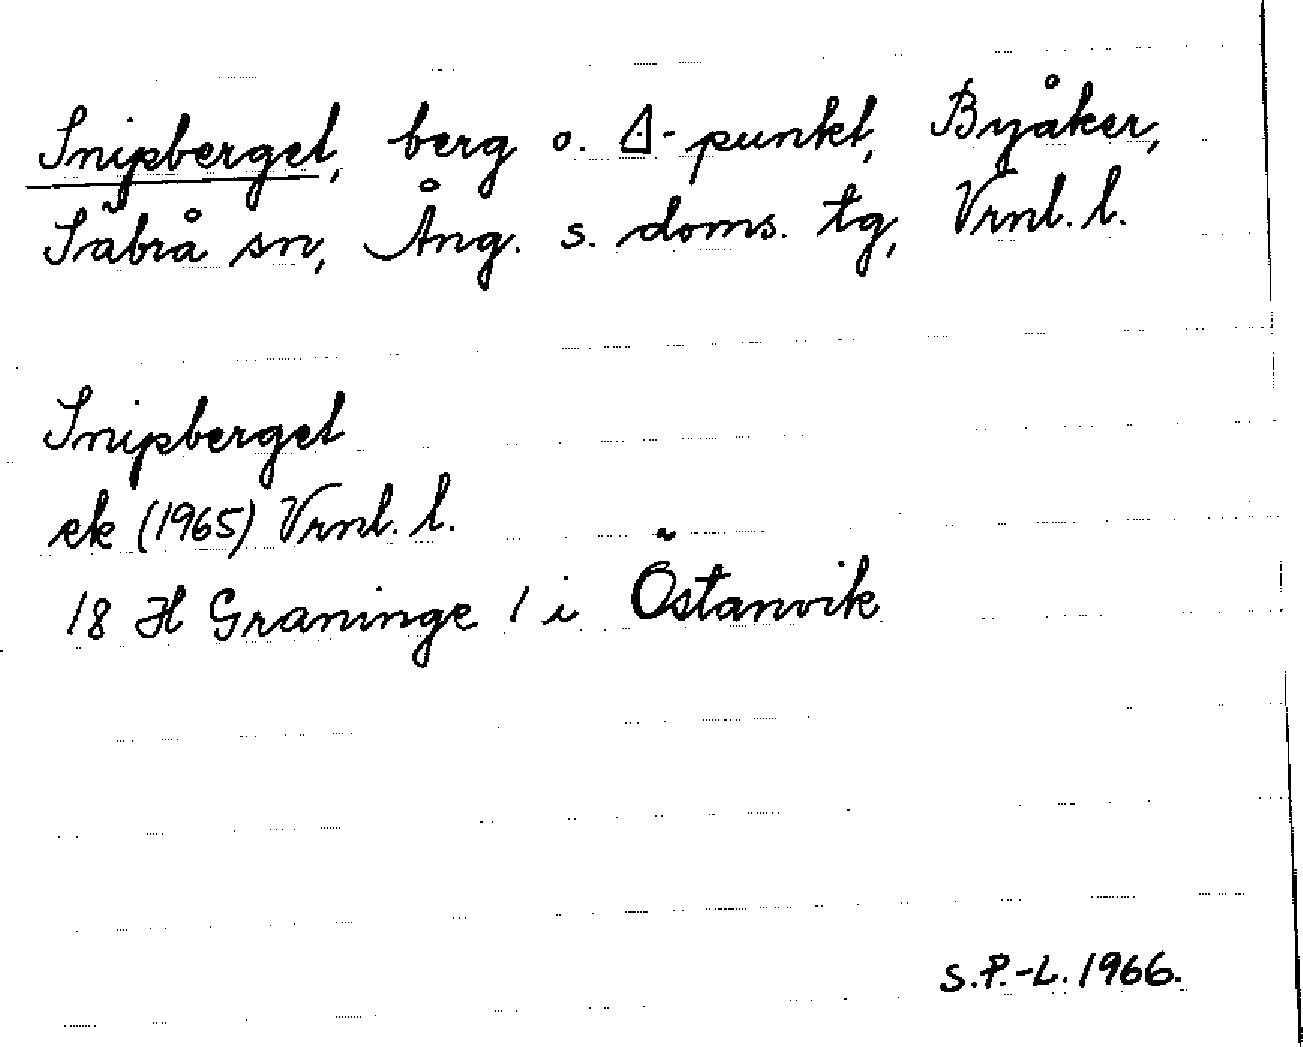 Snipberget, berg o. ∆-punkt, Byåker,
Säbrå sn, Ång. s. doms. tg, Vrnl. l.
Snipberget
ek (1965) Vrnl. l.
18 H Graninge 1 i Östanvik
S.P.-L. 1966.